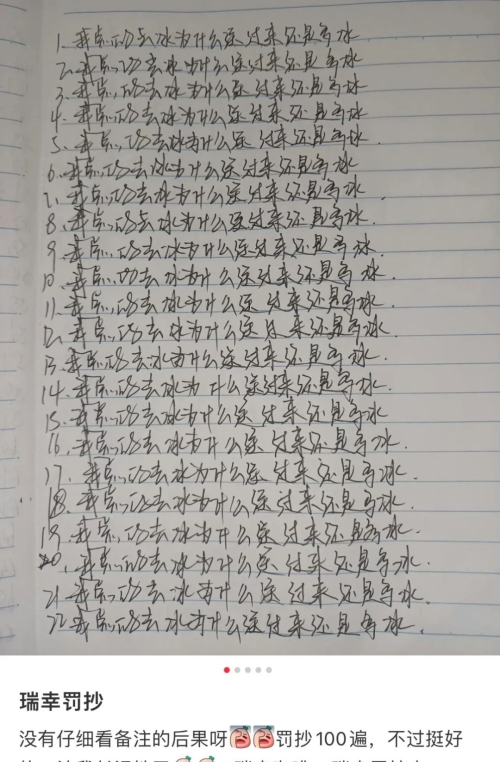 1. 我点的去冰为什么送过来还是多冰
2. 我点的去冰为什么送过来还是多冰
3. 我点的去冰为什么送过来还是多冰
4. 我点的去冰为什么送过来还是多冰
5. 我点的去冰为什么送过来还是多冰.
6. 我点的去冰为什么送过来还是多冰
7. 我点的去冰为什么送过来还是多冰
8. 我点的去冰为什么送过来还是多冰.
9. 我点的去冰为什么送过来还是多冰.
10. 我点的去冰为什么送过来还是多冰.
11. 我点的去冰为什么送过来还是多冰.
12. 我点的去冰为什么送过来还是多冰.
13. 我点的去冰为什么送过来还是多冰.
14. 我点的去冰为什么送过来还是多冰
15. 我点的去冰为什么送过来还是多冰
16. 我点的去冰为什么送过来还是多冰.
17. 我点的去冰为什么送过来还是多冰.
18. 我点的去冰为什么送过来还是多冰.
19. 我点的去冰为什么送过来还是多冰
20. 我点的去冰为什么送过来还是多冰.
21. 我点的去冰为什么送过来还是多冰.
22. 我点的去冰为什么送过来还是多冰.
瑞幸罚抄
没有仔细看备注的后果呀罚抄100遍，不过挺好